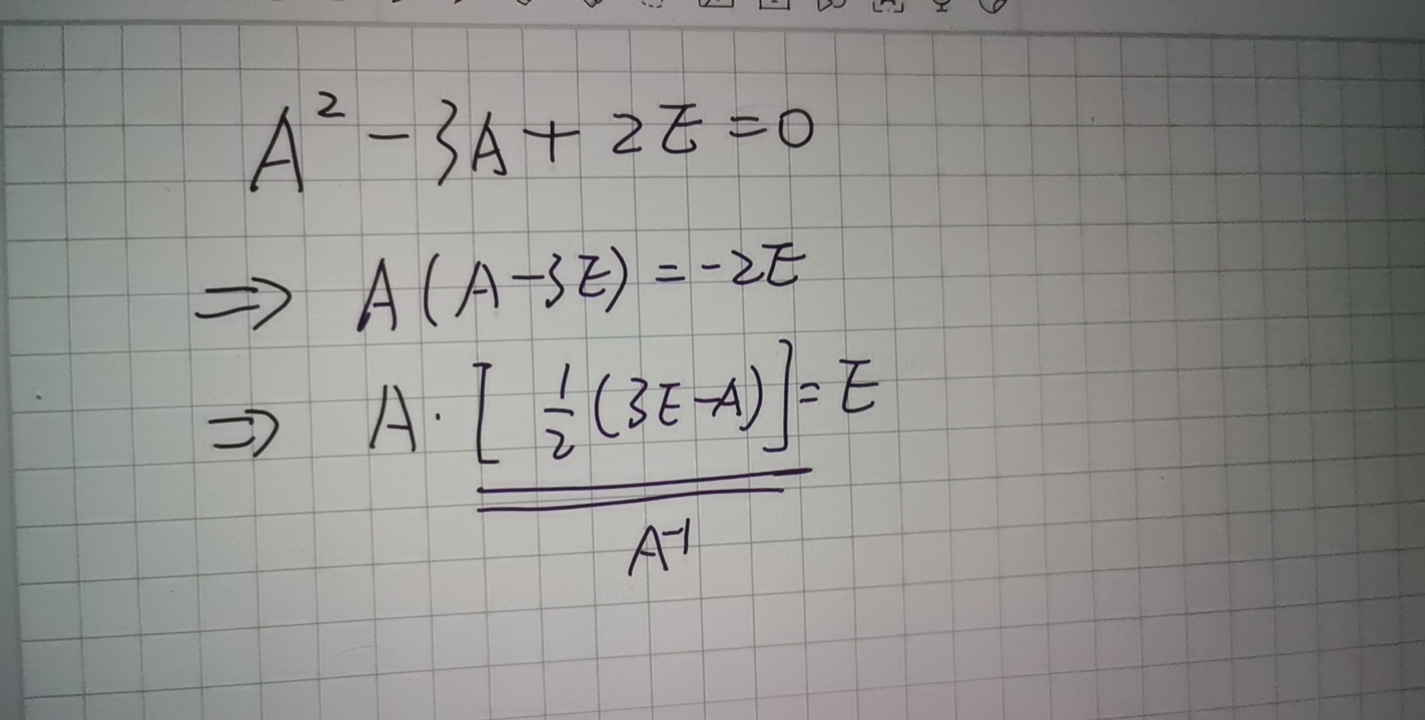 A² - 3A + 2E = 0
⇒ A(A - 3E) = -2E
⇒ A · [ 1/2 (3E - A) ] = E
A⁻¹